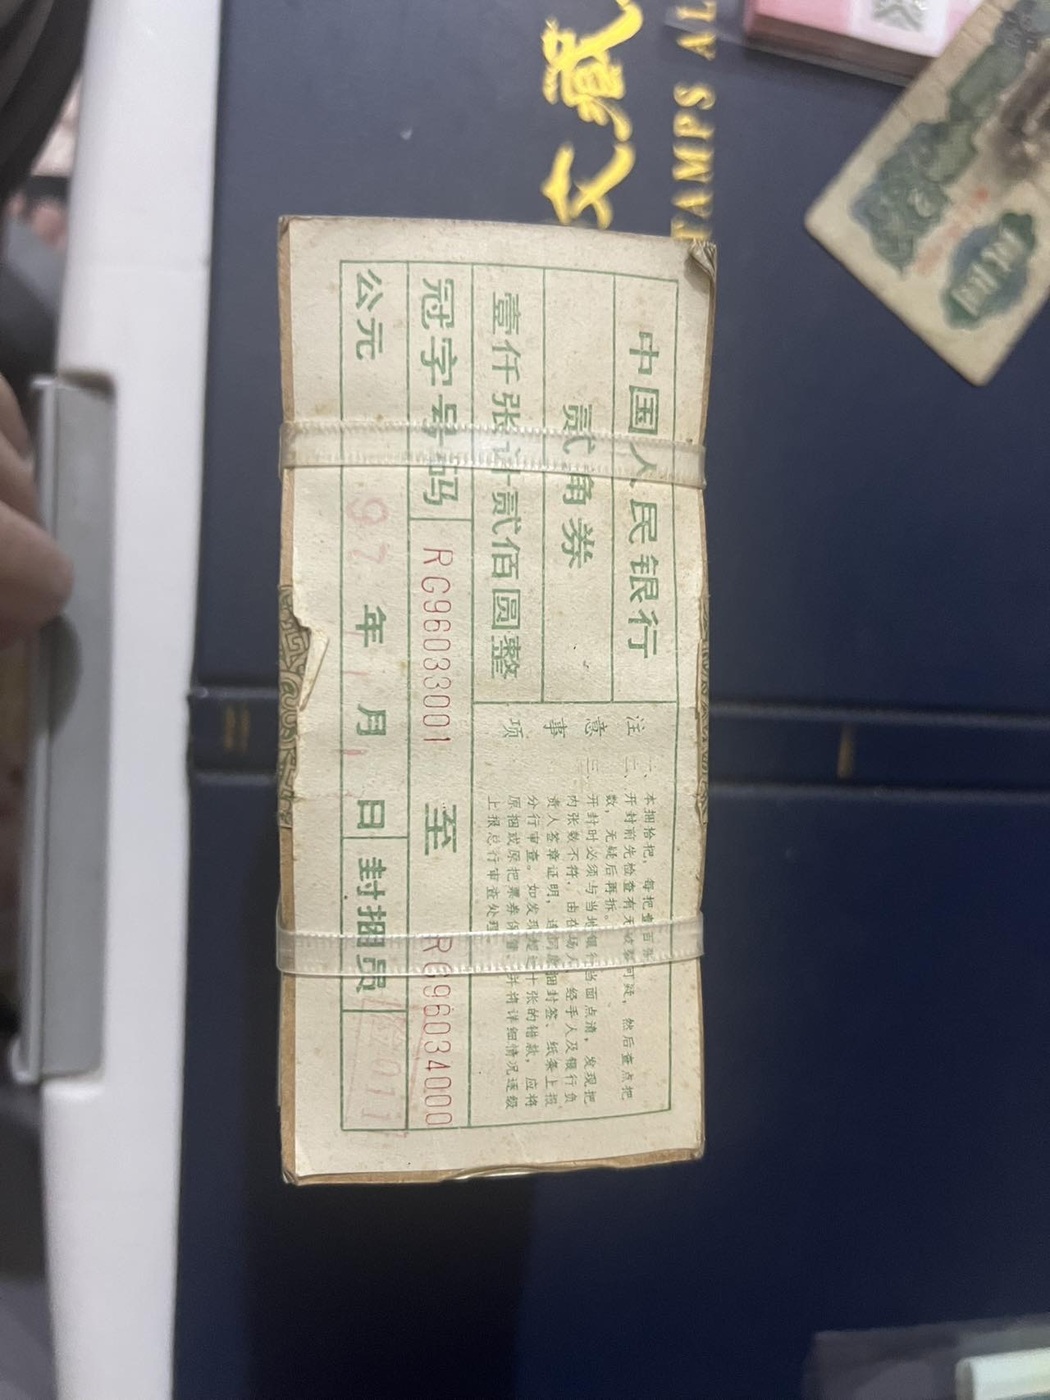 中国人民银行
贰角券
壹仟张计贰佰圆整
冠字号码 RG96033001 至 RG96034000
公元 97 年 1 月 1 日 封捆员
注意事项
一、本捆拾把，每把壹百张。
二、开封前先检查有无
然后查点把
数，无疑后再拆。
三、开封时必须与当地银行当面点清，发现把
内张数不符，由在场人、经手人及银行负
责人签章证明，连同原捆封签、纸条上报
分行审查。如发现超过十张的错款，应将
原捆或原把票券保管，并将详细情况逐级
上报总行审查处理。
文藏
TAMPS AL